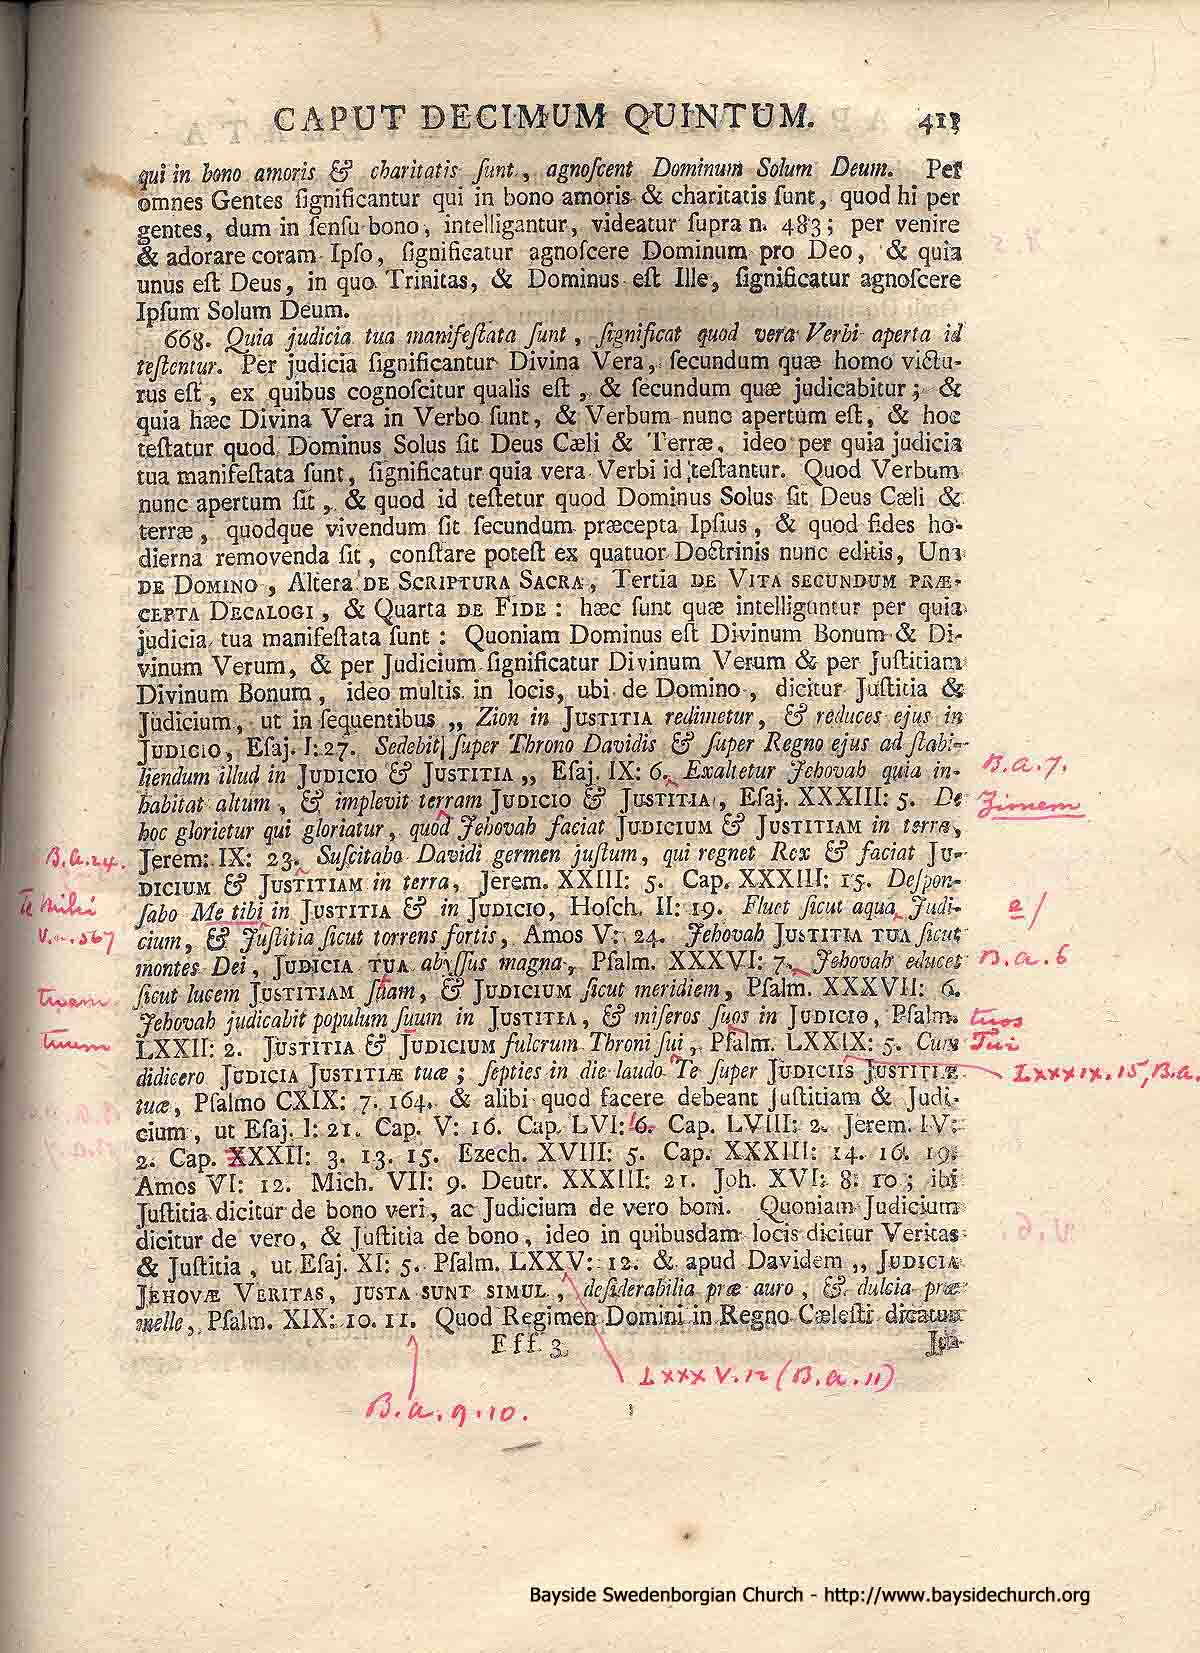 CAPUT DECIMUM QUINTUM. 413
qui in bono amoris & charitatis ſunt, agnoſcent Dominum Solum Deum. Per
omnes Gentes ſignificantur qui in bono amoris & charitatis ſunt, quod hi per
gentes, dum in ſenſu bono, intelligantur, videatur ſupra n. 483; per venire
& adorare coram Ipſo, ſignificatur agnoſcere Dominum pro Deo, & quia
unus eſt Deus, in quo Trinitas, & Dominus eſt Ille, ſignificatur agnoſcere
Ipſum Solum Deum.
668. Quia judicia tua manifeſtata ſunt, ſignificat quod vera Verbi aperta id
teſtentur. Per judicia ſignificantur Divina Vera, ſecundum quæ homo victu-
rus eſt, ex quibus cognoſcitur qualis eſt, & ſecundum quæ judicabitur; &
quia hæc Divina Vera in Verbo ſunt, & Verbum nunc apertum eſt, & hoc
teſtatur quod Dominus Solus ſit Deus Cæli & Terræ, ideo per quia judicia
tua manifeſtata ſunt, ſignificatur quia vera Verbi id teſtantur. Quod Verbum
nunc apertum ſit, & quod id teſtetur quod Dominus Solus ſit Deus Cæli &
terræ, quodque vivendum ſit ſecundum præcepta Ipſius, & quod fides ho-
dierna removenda ſit, conſtare poteſt ex quatuor Doctrinis nunc editis, Una
DE DOMINO, Altera DE SCRIPTURA SACRA, Tertia DE VITA SECUNDUM PRÆ-
CEPTA DECALOGI, & Quarta DE FIDE: hæc ſunt quæ intelliguntur per quia
judicia tua manifeſtata ſunt: Quoniam Dominus eſt Divinum Bonum & Di-
vinum Verum, & per Judicium ſignificatur Divinum Verum & per Juſtitiam
Divinum Bonum, ideo multis in locis, ubi de Domino, dicitur Juſtitia &
Judicium, ut in ſequentibus „ Zion in JUSTITIA redimetur, & reduces ejus in
JUDICIO, Eſaj. I: 27. Sedebit ſuper Throno Davidis & ſuper Regno ejus ad ſtabi-
liendum illud in JUDICIO & JUSTITIA „ Eſaj. IX: 6. Exaltetur Jehovah quia in-
B.a.7.
habitat altum, & implevit terram JUDICIO & JUSTITIA, Eſaj. XXXIII: 5. De
Zionem
hoc glorietur qui gloriatur, quod Jehovah faciat JUDICIUM & JUSTITIAM in terra,
B.a.24. Jerem: IX: 23. Suſcitabo Davidi germen juſtum, qui regnet Rex & faciat JU-
DICIUM & JUSTITIAM in terra, Jerem. XXIII: 5. Cap. XXXIII: 15. Deſpon-
Te Mihi ſabo Me tibi in JUSTITIA & in JUDICIO, Hoſch. II: 19. Fluet ſicut aqua Judi-
e/
V. n. 567 cium, & Juſtitia ſicut torrens fortis, Amos V: 24. Jehovah JUSTITIA TUA ſicut
montes Dei, JUDICIA TUA abyſſus magna, Pſalm. XXXVI: 7. Jehovah educet
B.a.6
tuam ſicut lucem JUSTITIAM ſuam, & JUDICIUM ſicut meridiem, Pſalm. XXXVII: 6.
Jehovah judicabit populum ſuum in JUSTITIA, & miſeros ſuos in JUDICIO, Pſalm. tuos
tuum LXXII: 2. JUSTITIA & JUDICIUM fulcrum Throni ſui, Pſalm. LXXIX: 5. Cum Tui
didicero JUDICIA JUSTITIÆ tuæ; ſepties in die laudo Te ſuper JUDICIIS JUSTITIÆ LXXXIX.15, B.a.
tuæ, Pſalmo CXIX: 7. 164. & alibi quod facere debeant Juſtitiam & Judi-
cium, ut Eſaj. I: 21. Cap. V: 16. Cap. LVI: 6. Cap. LVIII: 2. Jerem. IV:
2. Cap. XXXII: 3. 13. 15. Ezech. XVIII: 5. Cap. XXXIII: 14. 16. 19.
Amos VI: 12. Mich. VII: 9. Deutr. XXXIII: 21. Joh. XVI: 8: 10; ibi
Juſtitia dicitur de bono veri, ac Judicium de vero boni. Quoniam Judicium
dicitur de vero, & Juſtitia de bono, ideo in quibusdam locis dicitur Veritas
& Juſtitia, ut Eſaj. XI: 5. Pſalm. LXXV: 12. & apud Davidem „ JUDICIA
JEHOVÆ VERITAS, JUSTA SUNT SIMUL, deſiderabilia præ auro, & dulcia præ
melle, Pſalm. XIX: 10. 11. Quod Regimen Domini in Regno Cæleſti dicatur
Fff 3
LXXXV.12 (B.a.11)
B.a.9.10.
Bayside Swedenborgian Church - http://www.baysidechurch.org